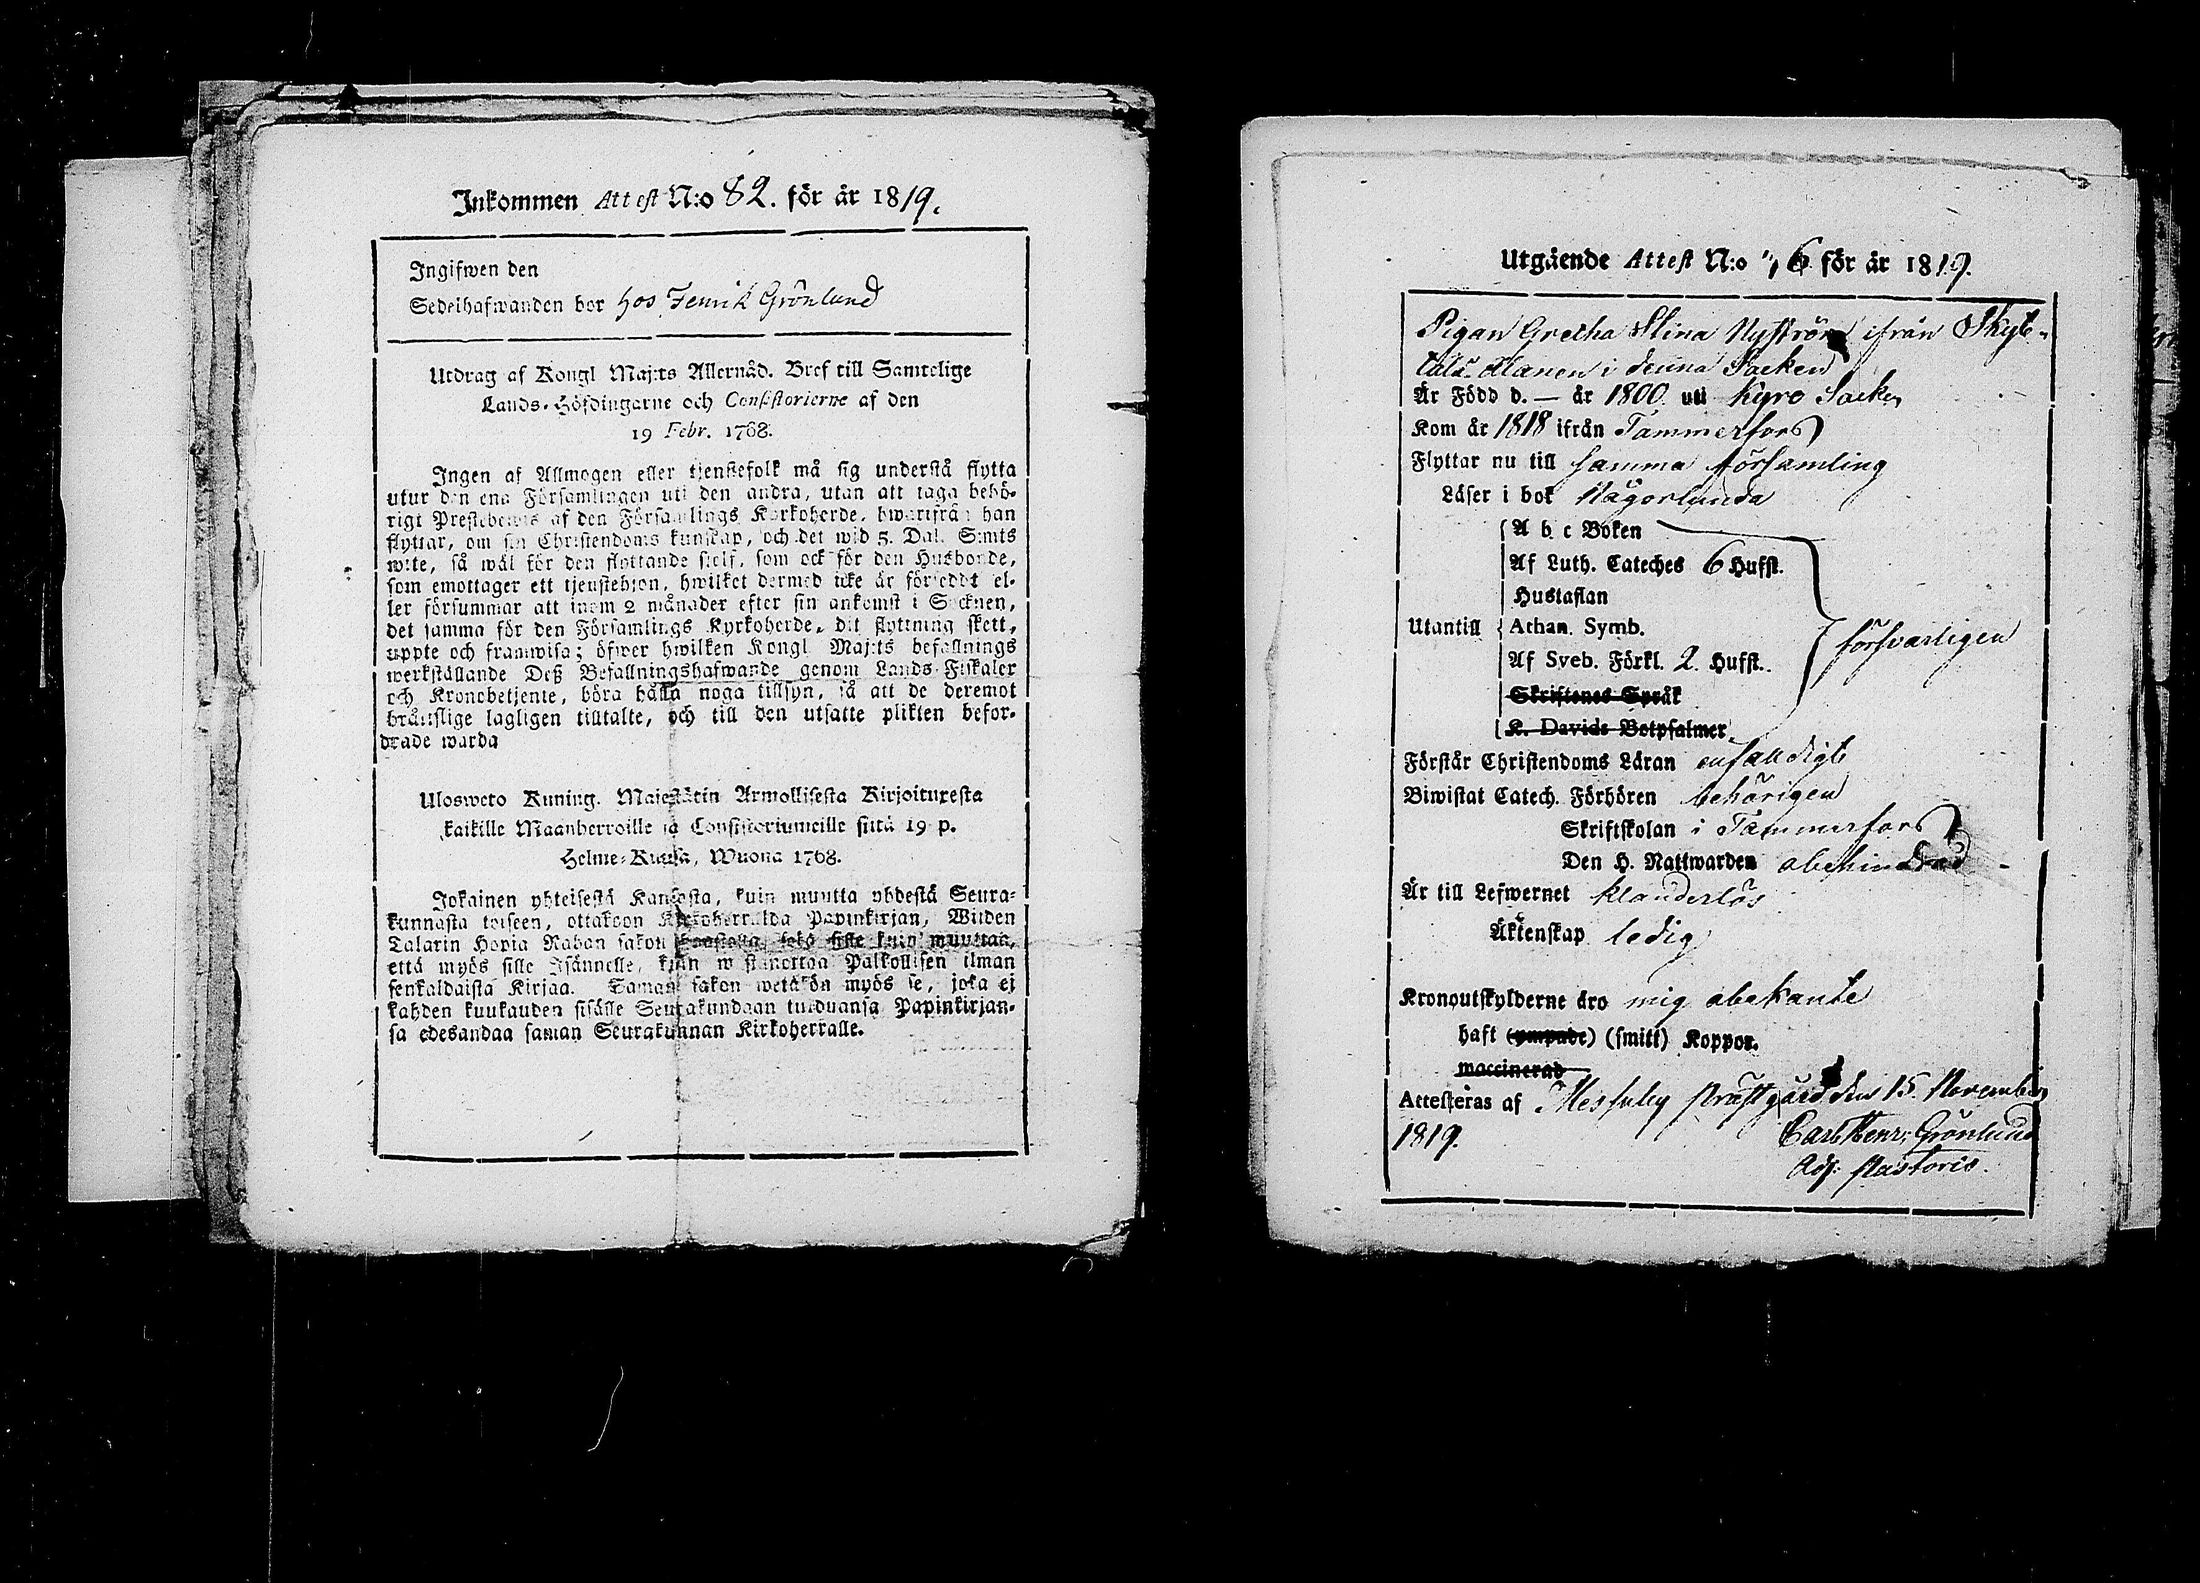 Inkommen Attest N:o 82. för år 1819.
Ingifwen den
Sedelhafwanden bor hos Henrik Grönlund
Utdrag af Kongl Maj:ts Allernåd. Bref till Samtelige
Lands-Höfdingarne och Consistorierne af den
19 Febr. 1768.
Ingen af Allmogen eller tjenstefolk må sig understå flytta
utur den ena Församlingen uti den andra, utan att taga behö-
rigt Prestebewis af den Församlings Kyrkoherde, hwarifrån han
flyttar, om sin Christendoms kunskap, och det wid 5. Dal. S:mts
wite, så wäl för den flyttande sielf, som ock för den Husbonde,
som emottager ett tjenstehjon, hwilket dermed icke är förseddt el-
ler försummar att inom 2 månader efter sin ankomst i Socknen,
det samma för den Församlings Kyrkoherde, dit flyttning skett,
uppte och framwisa; öfwer hwilken Kongl Maj:ts befallnings
werkställande Deß Befallningshafwande genom Lands-Fiskaler
och Kronobetjente, böra hålla noga tillsyn, så att de deremot
bråttslige lagligen tilltalte, och till den utsatte plikten befor-
drade warda
Ulosweto Kuning. Majestätin Armollisesta Kirjoituxesta
kaikille Maanherroille ja Consistoriumeille siitä 19 p.
Helme-Kuusa, Wuona 1768.
Jokainen yhteisestä Kansasta, kuin muutta yhdestä Seura-
kunnasta toiseen, ottakoon Kirkoherralda Papinkirjan, Wiiden
Talarin Hopia Rahan sakon haastolla, sekä sille kuin muuttaa,
että myös sille Isännelle, kuin wastanottaa Palkollisen ilman
senkaldaista Kirjaa. Saman sakon wetäkön myös se, joka ej
kahden kuukauden sisälle Seurakundaan tulduansa Papinkirjan-
sa edesandaa saman Seurakunnan Kirkoherralle.
Utgående Attest N:o 6 för år 1819.
Pigan Gretha Stina Nyström ifrån Skyt-
tälä Hanen i denna Socken
Är Född d. — år 1800 uti Kyro Socken
Kom år 1818 ifrån Tammerfors
Flyttar nu till samma församling
Läser i bok någorlunda
A b c Boken
Af Luth. Cateches 6 Hufst.
Hustaflan
Utantill Athan. Symb. försvarligen
Af Sveb. Förkl. 2. Hufst.
Skriftenes Språk
K. Davids Botpsalmer
Förstår Christendoms Läran enfalldigt
Biwistat Catech. Förhören behörigen
Skriftskolan i Tammerfors
Den H. Nattwarden obehindrad
Är till Lefwernet klanderlös
Äktenskap ledig
Kronoutskylderne äro mig obekante
haft (ympade) (smitt) Koppor.
waccinerad
Attesteras af Messuby Prästgård den 15. November
1819. Carl Henr. Grönlund
Adj. Pastoris.